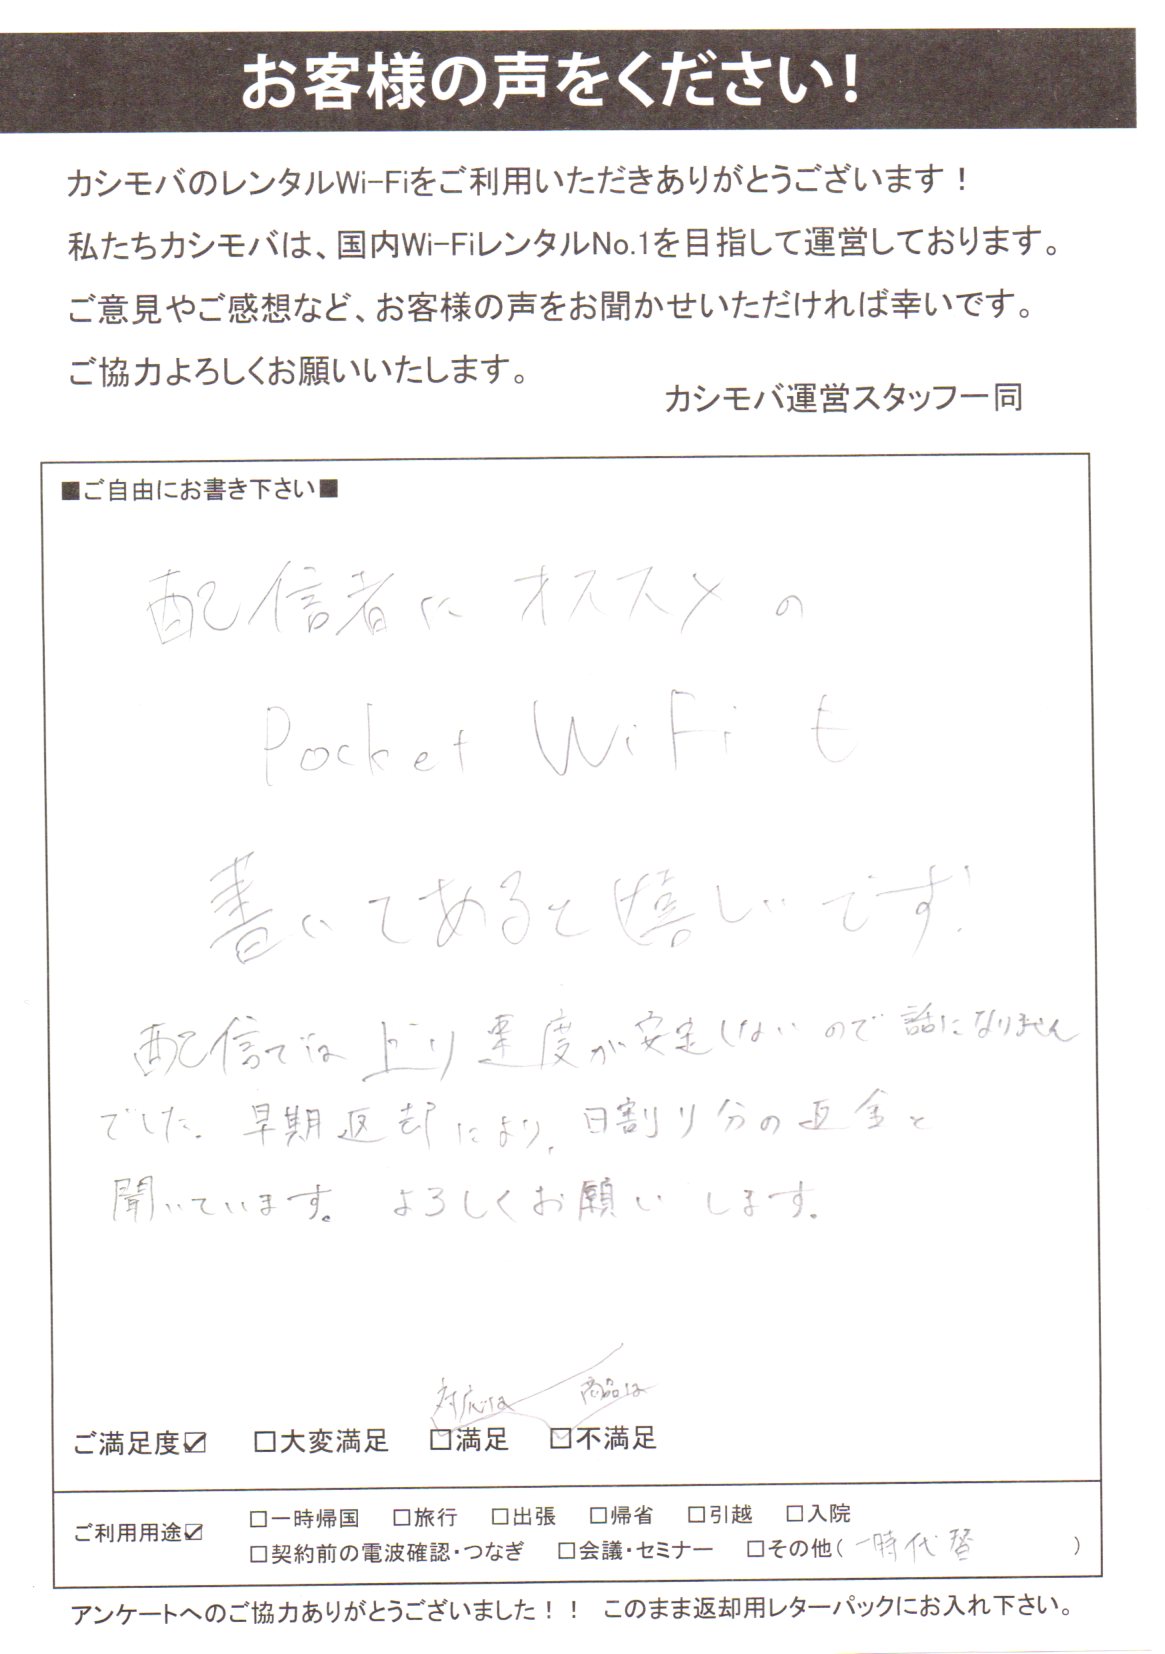 お客様の声をください!
カシモバのレンタルWi-Fiをご利用いただきありがとうございます！
私たちカシモバは、国内Wi-FiレンタルNo.1を目指して運営しております。
ご意見やご感想など、お客様の声をお聞かせいただければ幸いです。
ご協力よろしくお願いいたします。
カシモバ運営スタッフ一同
■ご自由にお書き下さい■
配信者にオススメの
Pocket WiFi も
書いてあると嬉しいです!
配信では上り速度が安定しないので話になりません
でした。早期返却により、日割り分の返金と
聞いています。よろしくお願いします。
対応は 商品は
ご満足度☑ □大変満足 ☑満足 ☑不満足
ご利用用途☑ □一時帰国 □旅行 □出張 □帰省 □引越 □入院
□契約前の電波確認・つなぎ □会議・セミナー □その他( 一時代替 )
アンケートへのご協力ありがとうございました！！ このまま返却用レターパックにお入れ下さい。